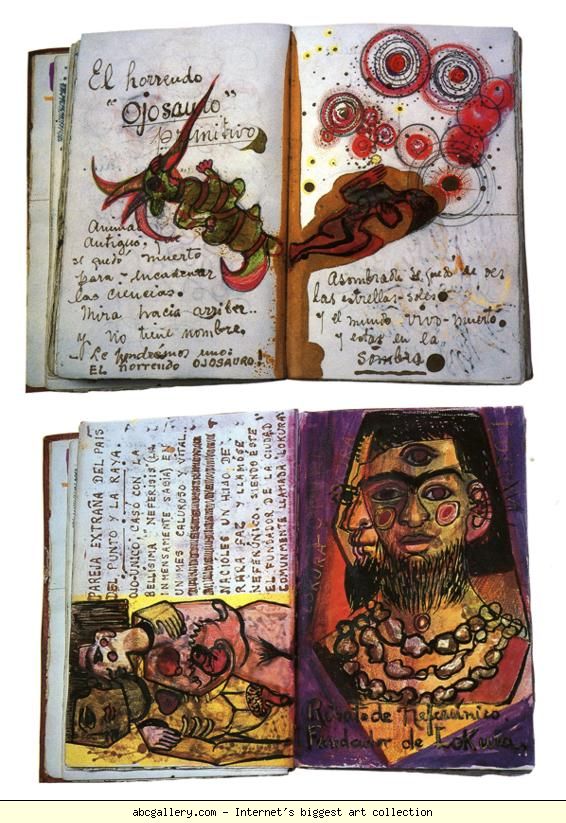 El horrendo
"Ojosauro"
primitivo
Animal
antiguo, que
se quedó muerto
para encadenar
las ciencias.
Mira hacia arriba..
y no tiene nombre.
Le pondremos uno:
EL horrendo OJOSAURO!
Asombrada se quedó de ver
las estrellas-soles
y el mundo vivo-muerto
y estar en la
sombra
PAREJA EXTRAÑA DEL PAIS
DEL PUNTO Y LA RAYA.
OJO-ÚNICO, CASO CON LA
BELLISIMA NEFERISIS (LA
INMENSAMENTE SABIA) EN
UN MES CALUROSO Y VITAL..
NACIOLES UN HIJO DE
RARA FAZ Y LLAMOSE
NEFERÚNICO. SIENDO ESTE
EL FUNDADOR DE LA CIUDAD
COMUNMENTE LLAMADA "LOKURA"
Retrato de Neferúnico,
Fundador de Lokura.
abcgallery.com - Internet's biggest art collection